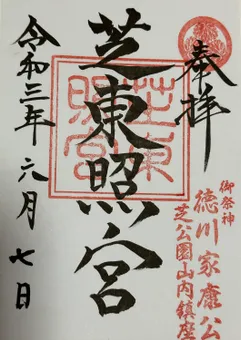 奉拝
御祭神
徳川家康公
芝公園山内鎮座
芝東照宮
芝東照宮
令和三年六月七日